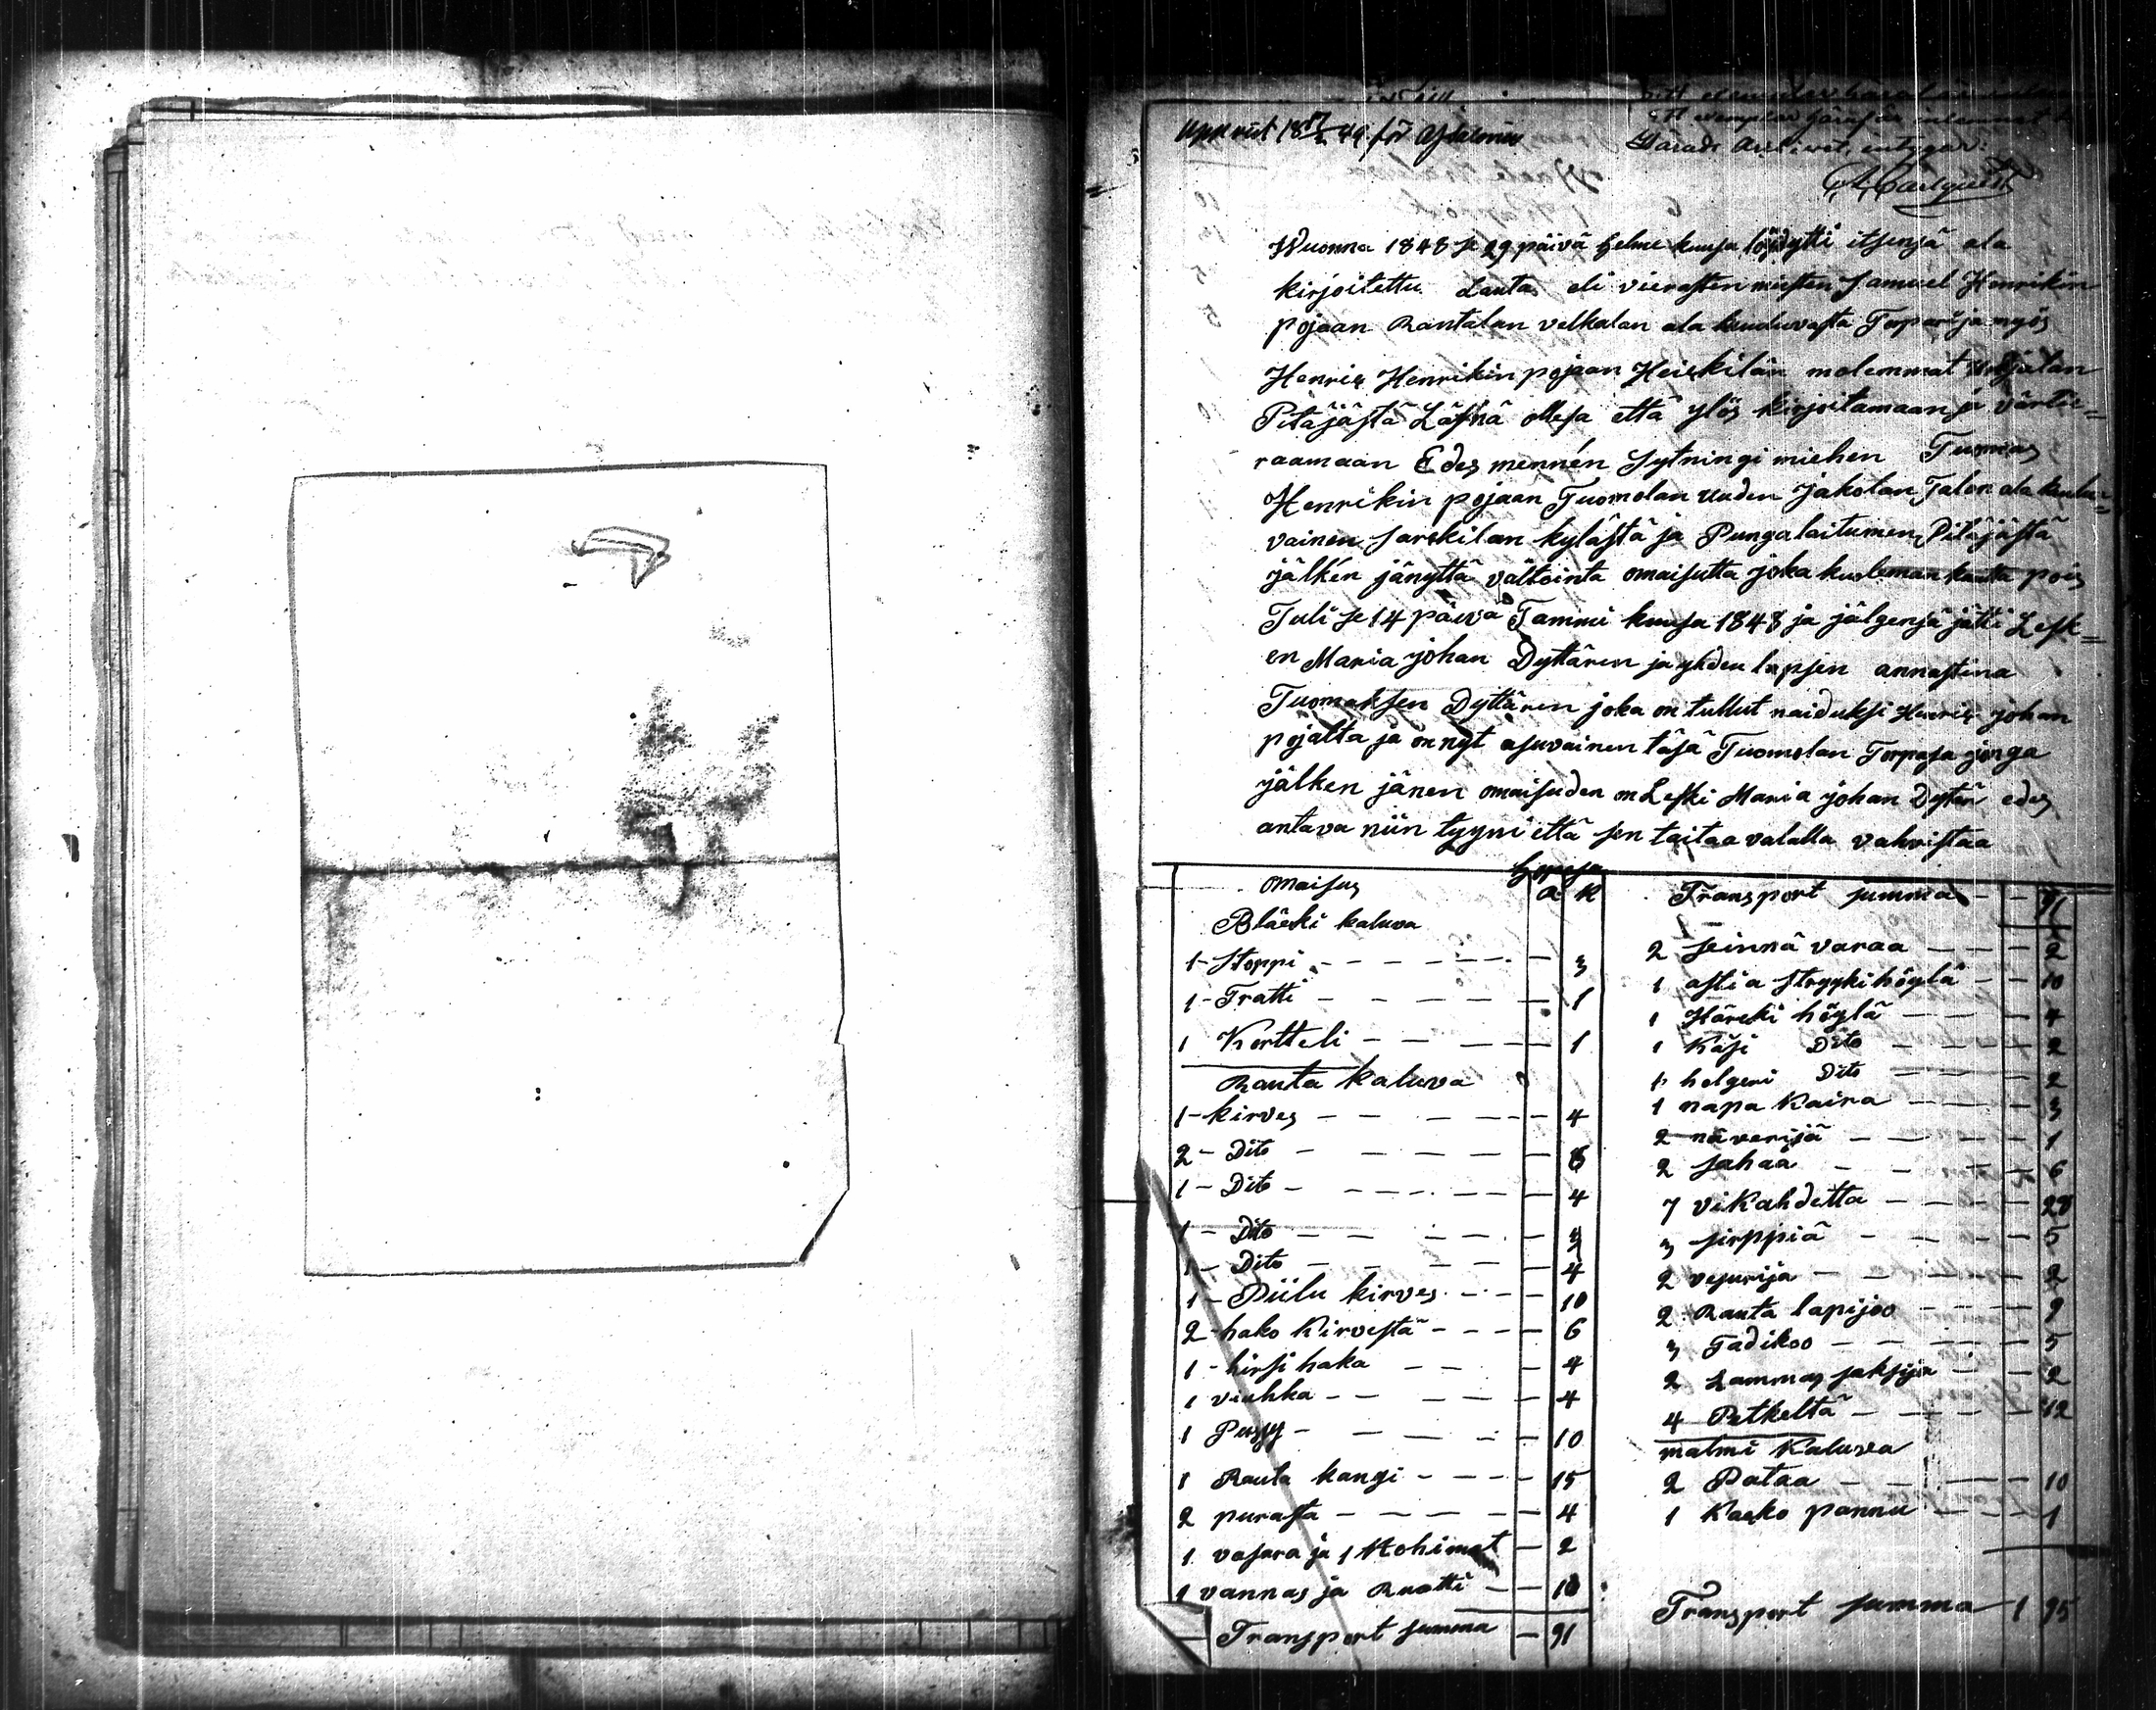 Uppvist 18 17/2 49 för afslutne
Ett exemplar häraf är inlemnat t
Härads Archivet, intygar:
A Carlquist
Wuonna 1848 se 29 päivä helme kuusa löydytti itsensä ala
kirjoitettu Lauta eli vierasten miesten Samuel Henrikin
pojaan Rantalan velkalan ala kuuluvasta Torpasta ja myös
Henrik Henrikin pojaan Heiskilän molemmat Urjalan
Pitäjästä Läsnä ollesa että ylös kirjoitamaan ja värtee=
raamaan Edes mennen Sytningi miehen Tuomas
Henrikin pojaan Tuomolan Uuden Jakolan Talon ala kuulu=
vainen Sarkkilan kylästä ja Pungalaitumen Pitäjästä
jälken jänyttä vältointa omaisutta joka kuoleman kautta pois
Tuli se 14 päivä Tammi kuusa 1848 ja jälgensä jätti Lesk=
en Maria johan Dyttären ja yhden lapsen annastina
Tuomaksen Dyttären joka on tullut naiduksi Henrik johan
pojalta ja on nyt asuvainen täsä Tuomolan Torpasa jonga
jälken jänen omaisuden on Leski Maria johan Dytär edes
antava niin tyyni että sen taitaa valalla vahvistaa
omaisus Hopeasa
R K
Bläcki kaluva
1 - Stoppi - - - 3
1 - Tratti - - - 1
1 Kortteli - - - 1
Rauta kaluva
1 - kirves - - - 4
2 - Dito - - - 8
1 - Dito - - - 4
1 - Dito - - -
1 - Dito - - - 4
1 - Piilu kirves - - - 10
2 - hako kirvestä - - - 6
1 - hirsi haka - - - 4
1 viuhka - - - 4
1 Pussy - - - 10
1 Rauta kangi - - - 15
2 purasta - - - 4
1 vasara ja 1 Hohimet - 2
1 vannas ja Ruotti - - 10
Transport summa - 91
Transport summa - - 91
2 seinnä varaa - - - 2
1 astia stryyki höylä - - 10
1 Häreki höylä - - - 4
1 Käsi Dito - - - 2
1 helgeri Dito - - - 2
1 napa kaira - - - 3
2 näverijä - - - 1
2 sahaa - - - 6
7 vikahdetta - - - 28
3 sirppiä - - - 5
2 vesurija - - - 2
2 Rauta lapijoo - - - 9
3 Tadikoo - - - 5
2 Lammas saksija - - 2
4 Petkeltä - - - 12
malmi Kaluva
2 Pataa - - - 10
1 Kacko pannu - - - 1
Transport summa 1 95